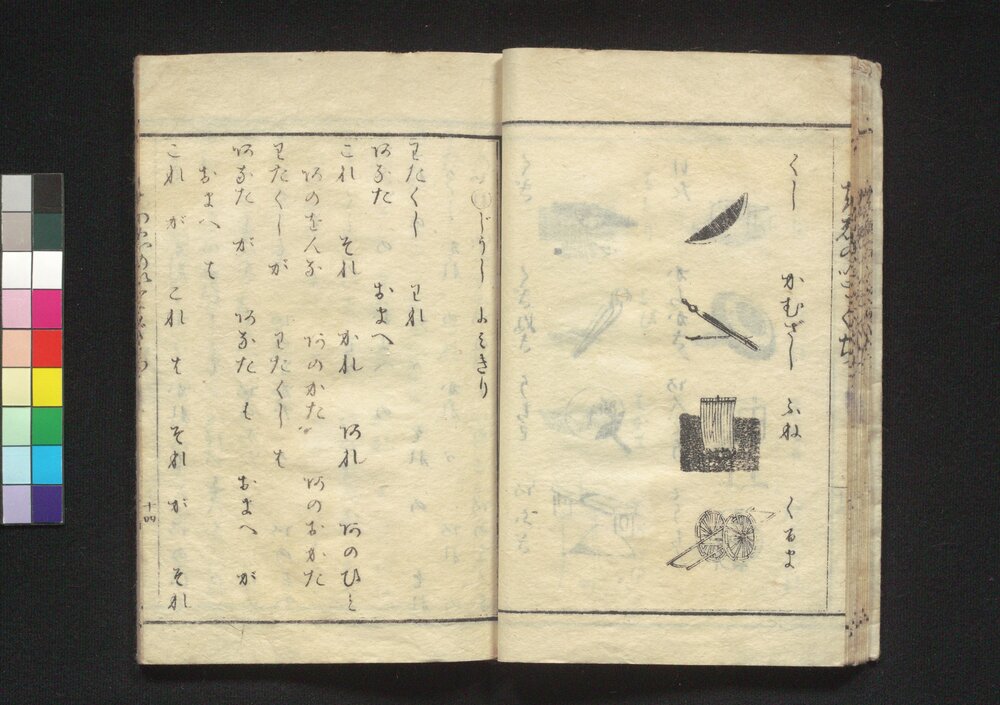 くし
かむざし
ふね
くるま
じうし よみきり
わたくし われ
あなた おまへ
これ それ かれ あれ あのひと
あのをんな あのかた あのおかた
わたくしが わたくし も
あなた が あなた も おまへ が
おまへ も
これ が これ も それ が それ
十四